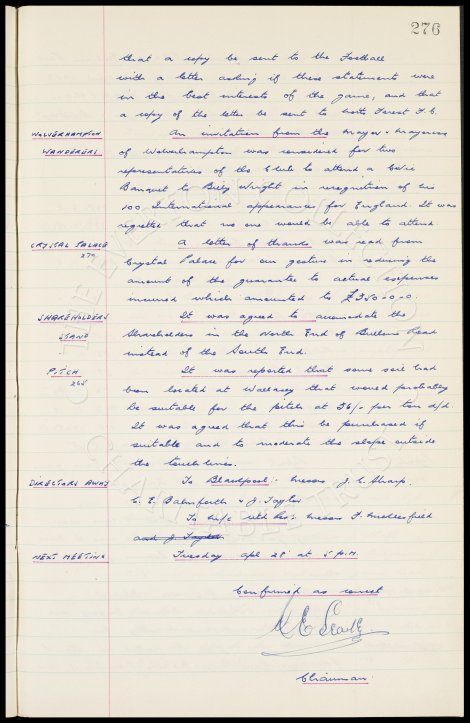 276
that a copy be sent to the Football
with a letter asking if these statements were
in the best interests of the game, and that
a copy of the letter be sent to Notts Forest F.C.
WOLVERHAMPTON An invitation from the Mayor & Mayoress
WANDERERS of Wolverhampton was considered for two
representatives of the Club to attend a Civic
Banquet to Billy Wright in recognition of his
100 International appearances for England. It was
regretted that no one would be able to attend
CRYSTAL PALACE A letter of thanks was read from
Crystal Palace for our gesture in reducing the
amount of the guarantee to actual expenses
incurred which amounted to £350-0-0.
SHAREHOLDERS It was agreed to accomodate the
STAND Shareholders in the North End of Bullens Road
instead of the South End.
PITCH It was reported that some soil had
265 been located at Wallasey that would probably
be suitable for the pitch at 36/- per ton d/d.
It was agreed that this be purchased if
suitable and to moderate the slope outside
the touch lines.
DIRECTORS AWAY To Blackpool:- Messrs J. C. Sharp,
C. E. Balmforth & J. Taylor
To M/c Utd Res: Messrs F. Micklesfield
and J. Taylor
NEXT MEETING Tuesday Apl 28 at 5 p.m.
Confirmed as correct
Chairman